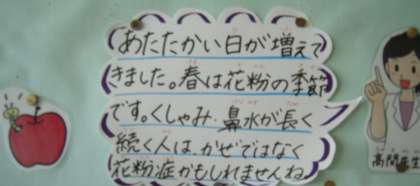 あたたかい日が増えて
きました。春は花粉の季節
です。くしゃみ・鼻水が長く
続く人は、かぜではなく
花粉症かもしれませんね